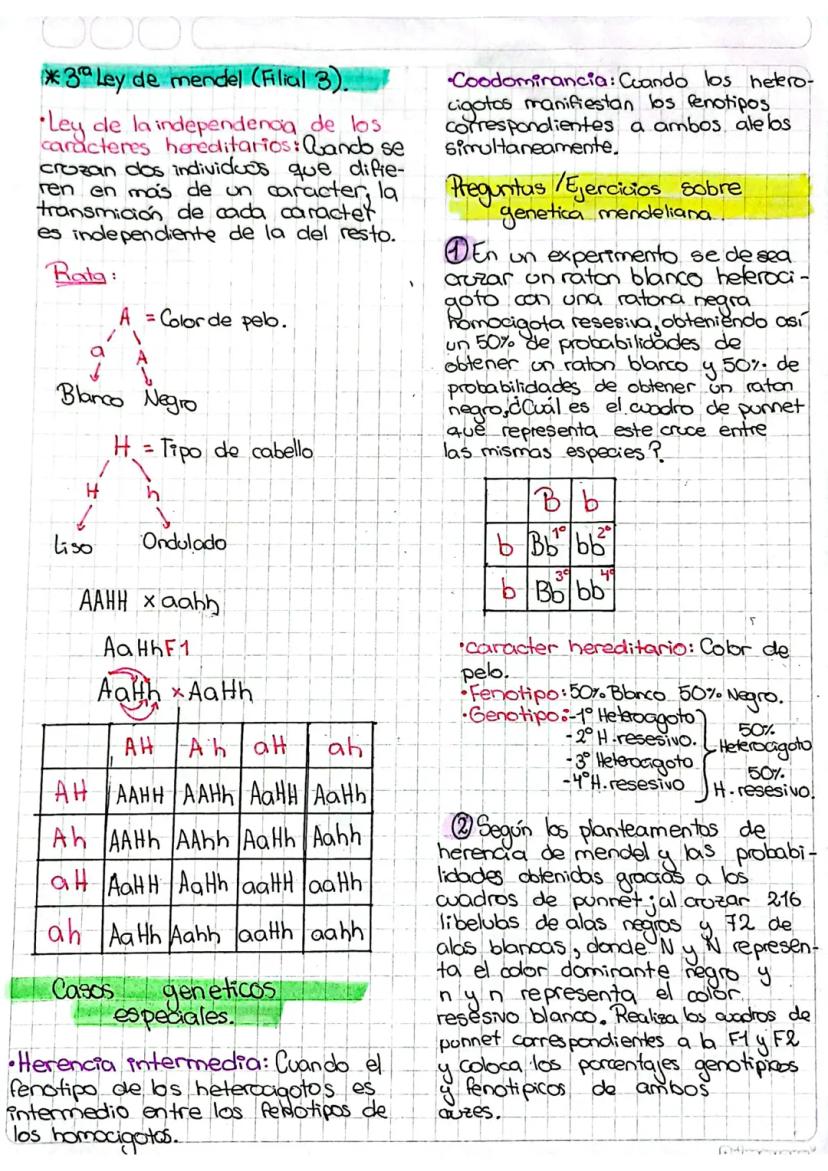 * 3ª Ley de mendel (Filial 3).
•Ley de la independencia de los
caracteres hereditarios: Cuando se
cruzan dos individuos que difie-
ren en más de un caracter, la
transmición de cada caracter
es independiente de la del resto.
Rata:
A = Color de pelo.
a A
Blanco Negro
H = Tipo de cabello
H h
Liso Ondulado
AAHH x aahh
AaHh F1
AaHh x AaHh
AH Ah aH ah
AH AAHH AAHh AaHH AaHh
Ah AAHh AAhh AaHh Aahh
aH AaHH AaHh aaHH aaHh
ah AaHh Aahh aaHh aahh
Casos geneticos
especiales.
•Herencia intermedia: Cuando el
fenotipo de los heterocigotos es
intermedio entre los fenotipos de
los homocigotos.
•Coodominancia: Cuando los hetero-
cigotos manifiestan los fenotipos
correspondientes a ambos alelos
simultaneamente.
Preguntas / Ejercicios sobre
genetica mendeliana.
① En un experimento se desea
cruzar un raton blanco heteroci-
goto con una ratona negra
homocigota resesiva, obteniendo así
un 50% de probabilidades de
obtener un raton blanco y 50% de
probabilidades de obtener un raton
negro, ¿Cuál es el cuadro de punnet
que representa este cruce entre
las mismas especies?
B b
b Bb 1º bb 2º
b Bb 3º bb 4º
•caracter hereditario: Color de
pelo.
•Fenotipo: 50% Blanco 50% Negro.
•Genotipo: -1º Heterocigoto
-2º H. resesivo.
-3º Heterocigoto
-4º H. resesivo
50%
Heterocigoto
50%
H. resesivo.
② Según los planteamentos de
herencia de mendel y las probabi-
lidades obtenidas gracias a los
cuadros de punnet; al cruzar 216
libelulas de alas negras y 72 de
alas blancas, donde N y N represen-
ta el color dominante negro y
n y n representa el color
resesivo blanco. Realiza los cuadros de
punnet correspondientes a la F1 y F2
y coloca los porcentajes genotipicos
y fenotipicos de ambos
cruzes.